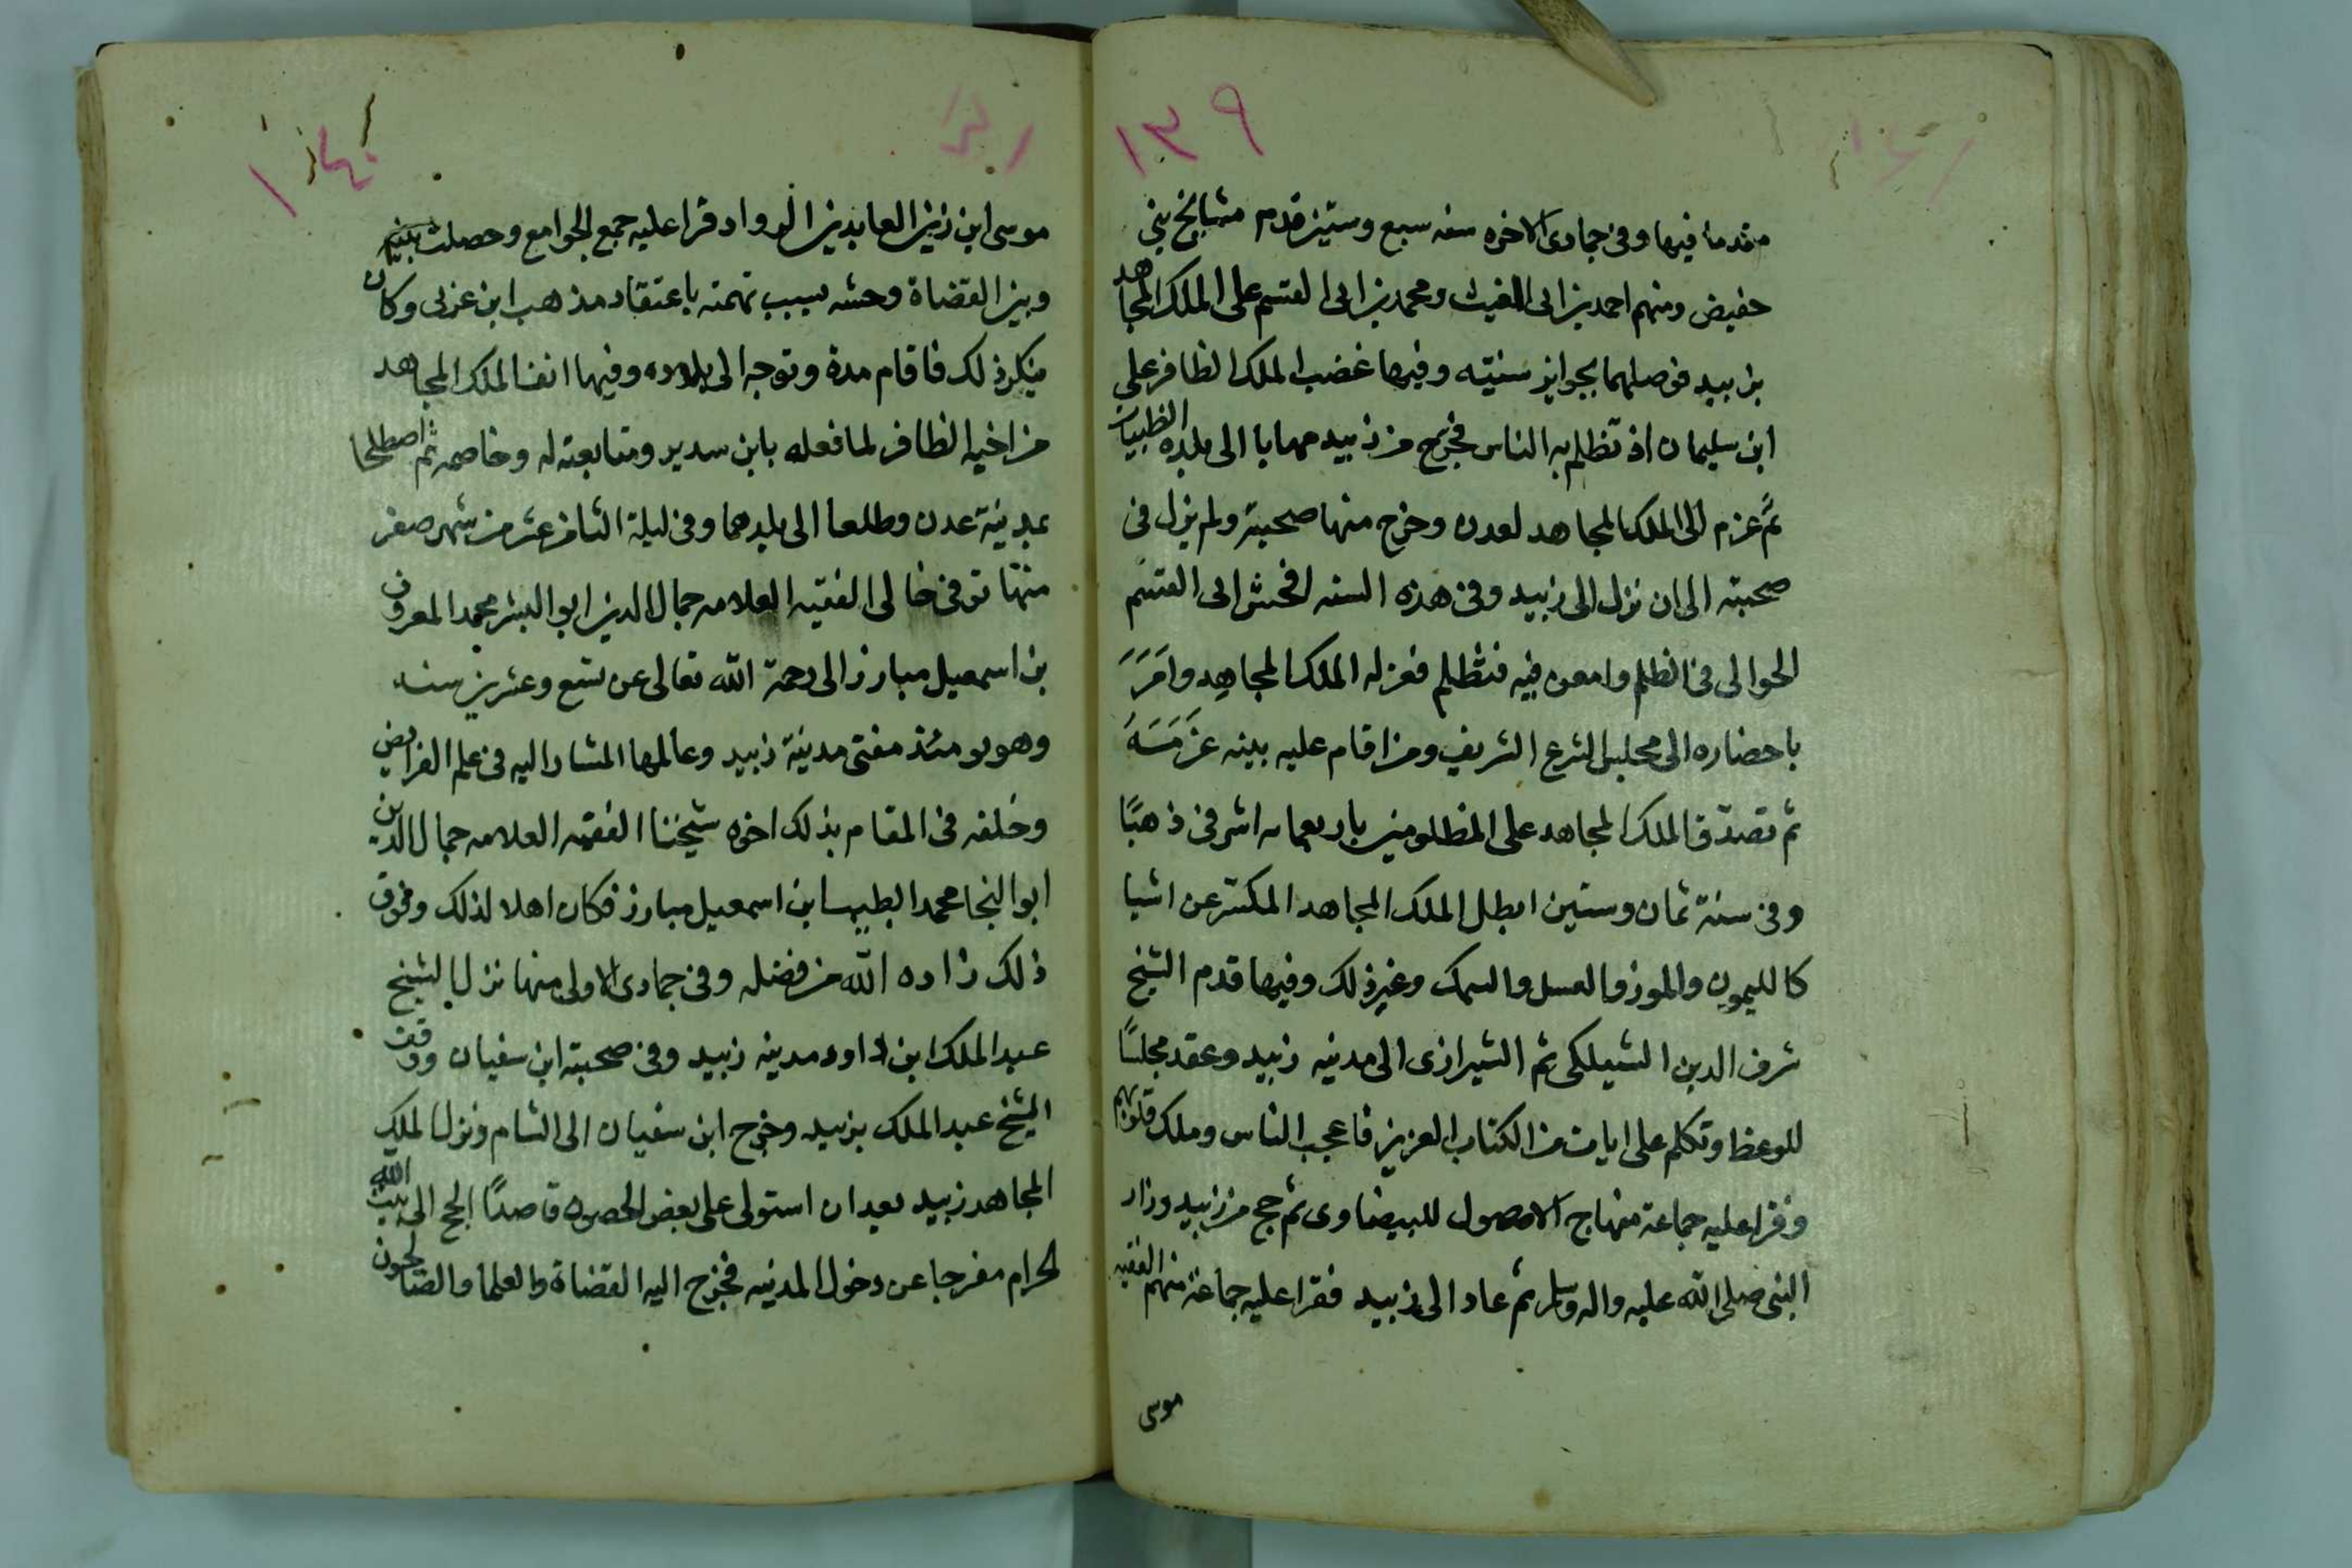 ١٣٩
مقدما فيها وفى جمادى الاخره سنه سبع وستين قدم مشايخ بنى
حفيص ومنهم احمد بن ابى الغيث ومحمد بن ابى القسم على الملك المجاهد
بزبيد فوصلهما بجوايز سنيّه وفيها غضب الملك الظافر على
ابن سليمان اذ تظلم به الناس فخرج من زبيد مهابا الى بلده الظبيات
ثم عزم الى الملك المجاهد لعدن وخرج منها صحبته ولم يزل فى
صحبته الى ان نزل الى زبيد وفى هذه السنه افحش ابى القسم
الحوالى فى الظلم وامعن فيه فتظلم فعزله الملك المجاهد وامَرَ
باحضاره الى مجلس الشرع الشريف ومن اقام عليه بينه غرَمَسَهُ
ثم تصدّق الملك المجاهد على المظلومين باربعمايه اشرفى ذهبًا
وفى سنة ثمان وستين ابطل الملك المجاهد المكس عن اشيا
كالليمون والموز والعسل والسمك وغير ذلك وفيها قدم الشيخ
شرف الدين الشيلكى ثم الشيرازى الى مدينه زبيد وعقد مجلسًا
للوعظ وتكلم على ايات من الكتاب العزيز فاعجب الناس وملك قلوبهم
وقرا عليه جماعة منهاج الاصول للبيضاوى ثم حج من زبيد وزار
النبى صلى الله عليه واله وسلم ثم عاد الى زبيد فقرا عليه جماعة منهم الفقيه
موسى
١٤٠
موسى ابن زين العابدين الرداد قرا عليه جمع الجوامع وحصلت بينه
وبين القضاة وحشه بسبب تهمته باعتقاد مذهب ابن عربى وكان
ينكر ذلك فاقام مدة وتوجه الى بلاده وفيها انف الملك المجاهد
من اخيه الظافر لما فعله بابن سدير ومتابعته له وخاصمه ثم اصطلحا
بمدينة عدن وطلعا الى بلدهما وفى ليلة الثامن عشر من شهر صفر
منها توفى خالى الفقيه العلامه جمال الدين ابو البشر محمد المعروف
بن اسمعيل مبارز الى رحمة الله تعالى عن تسع وعشرين سنه
وهو يومئذ مفتى مدينة زبيد وعالمها المشار اليه فى علم الفرايض
وخلفه فى المقام بذلك اخوه شيخنا الفقيه العلامه جمال الدين
ابو النجا محمد الطيب ابن اسمعيل مبارز فكان اهلا لذلك وفوق
ذلك زاده الله من فضله وفى جمادى الاولى منها نزل الشيخ
عبد الملك ابن داود مدينه زبيد وفى صحبته ابن سفيان ووقف
الشيخ عبد الملك بزبيد وخرج ابن سفيان الى الشام ونزل الملك
المجاهد زبيد بعد ان استولى على بعض الحصون قاصدًا الحج الى بيت الله
الحرام مفرجا عن دخول المدينه فخرج اليه القضاة والعلما والصالحون